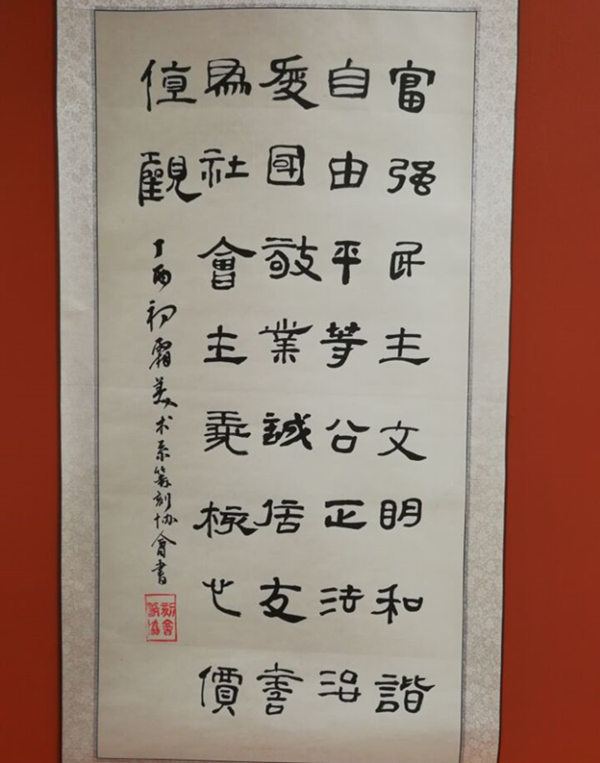 富强民主文明和諧
自由平等公正法治
愛國敬業誠信友善
為社會主義核心價
值觀
丁酉初霜美术系篆刻协會書